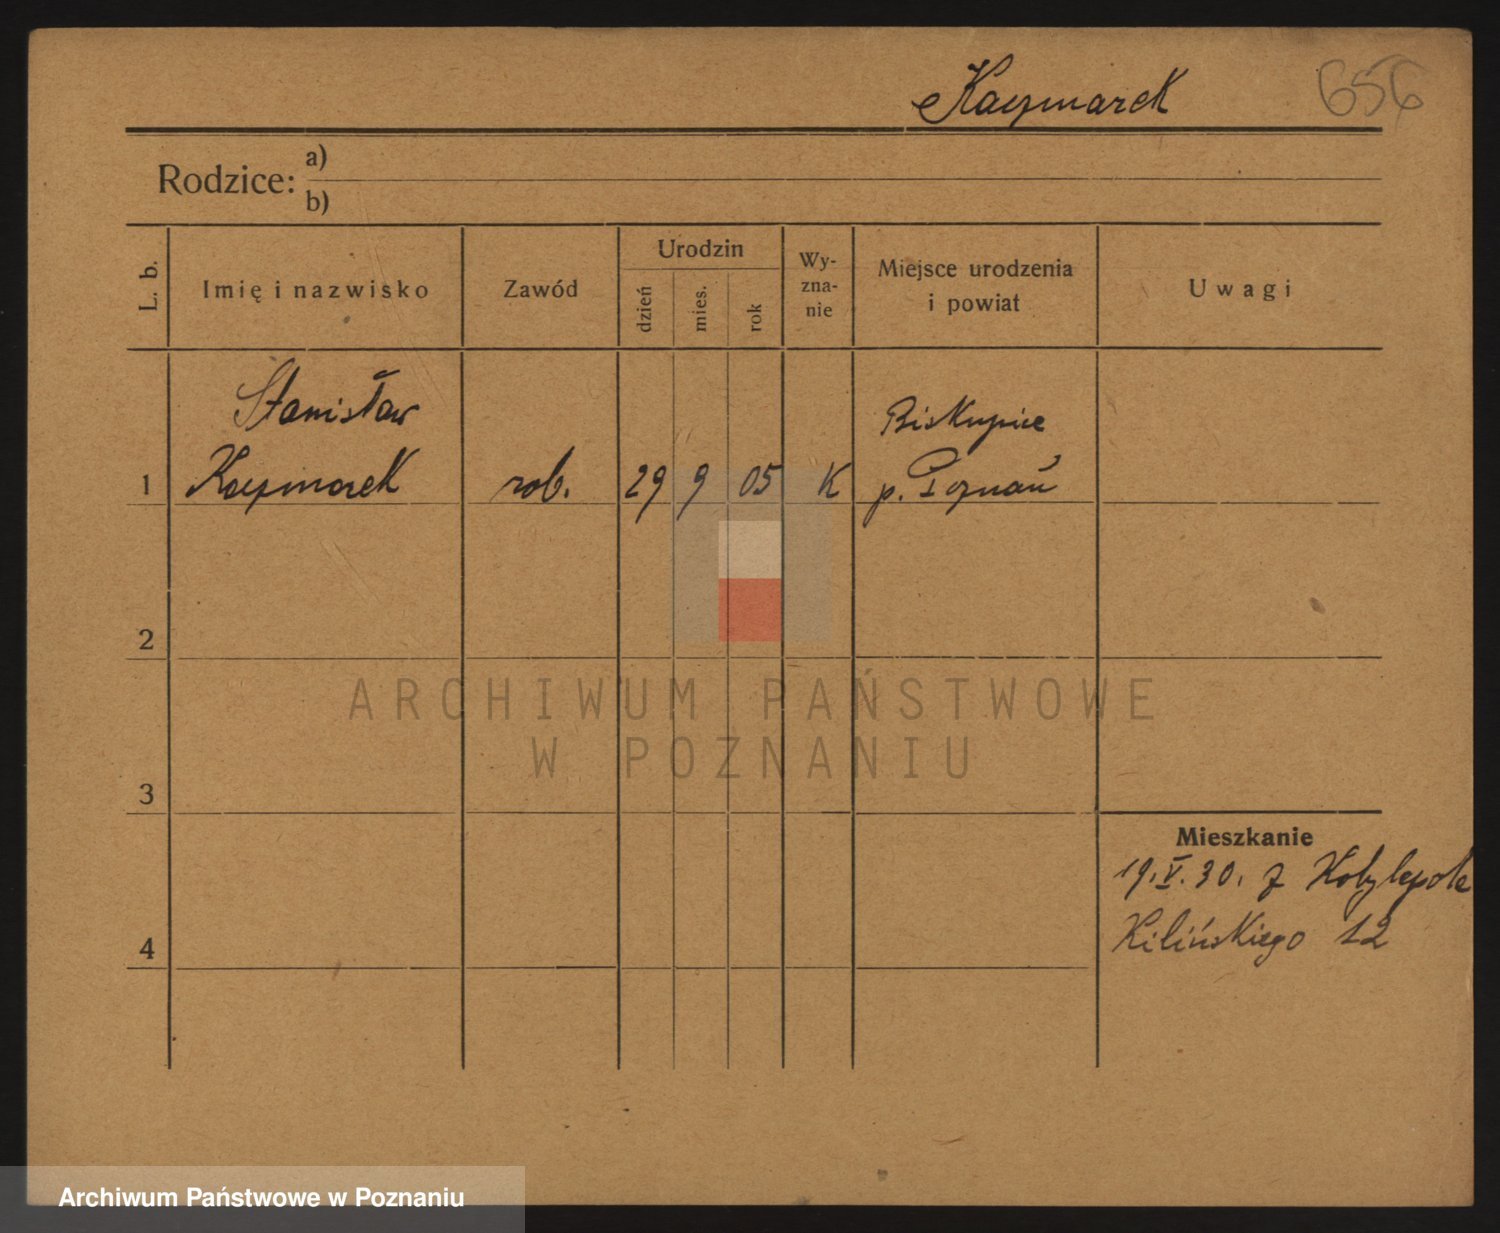 Kaczmarek 656
Rodzice: a)
b)
L. b.
Imię i nazwisko
Zawód
Urodzin
dzień
mies.
rok
Wy-
zna-
nie
Miejsce urodzenia
i powiat
Uwagi
Stanisław
1 Kaczmarek rob. 29 9 05 K
Biskupice
p. Poznań
2
3
4
Mieszkanie
19.V.30. z Kobylepole
Kilińskiego 12
ARCHIWUM PAŃSTWOWE
W POZNANIU
Archiwum Państwowe w Poznaniu